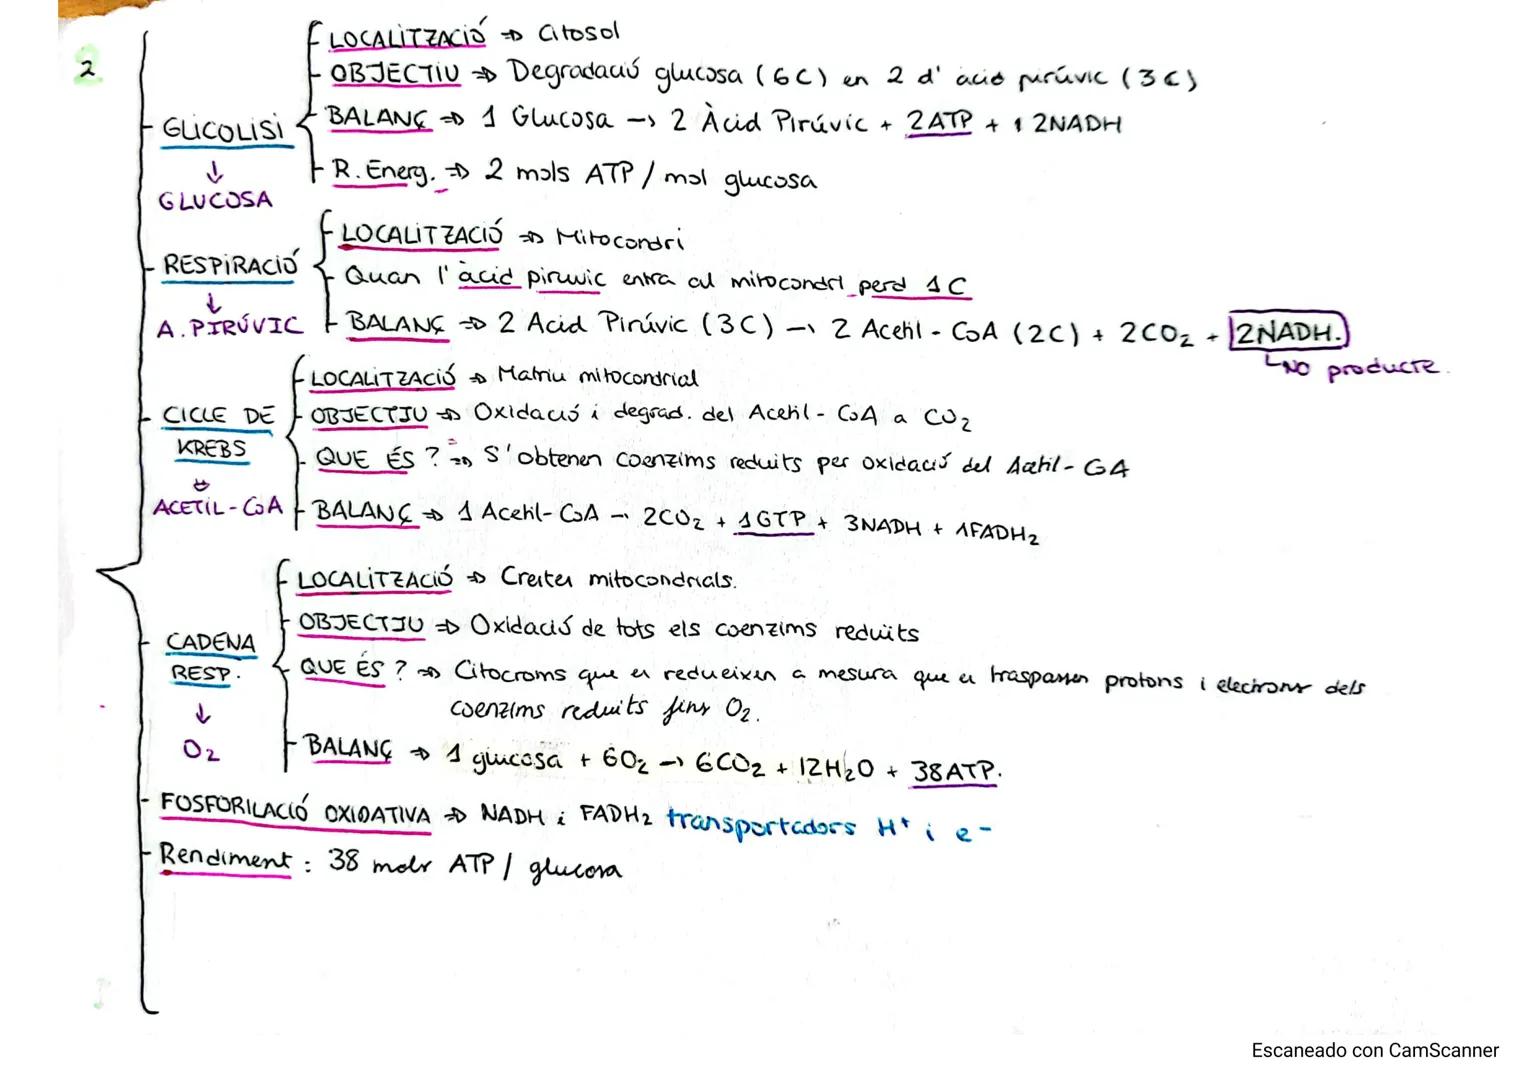 2
LOCALITZACIÓ => Citosol
OBJECTIU => Degradació glucosa (6C) en 2 d'àcid pirúvic (3C)
GLICOLISI
BALANÇ => 1 Glucosa -> 2 Àcid Pirúvic + 2ATP + 2NADH
↓
GLUCOSA
R. Energ. => 2 mols ATP / mol glucosa
LOCALITZACIÓ => Mitocondri
RESPIRACIÓ
Quan l'àcid piruvic entra al mitocondri perd 1C
↓
A. PIRÚVIC
BALANÇ => 2 Acid Pirúvic (3C) -> 2 Acetil-CoA (2C) + 2CO₂ + 2NADH.
↳NO producte.
LOCALITZACIÓ => Matriu mitocondrial
CICLE DE
KREBS
OBJECTIU => Oxidació i degrad. del Acetil-CoA a CO₂
QUE ÉS? => S'obtenen coenzims reduits per oxidació del Acetil-CoA
↓
ACETIL-CoA
BALANÇ => 1 Acetil-CoA -> 2CO₂ + 1GTP + 3NADH + 1FADH₂
LOCALITZACIÓ => Crestes mitocondrials.
OBJECTIU => Oxidació de tots els coenzims reduits
CADENA
RESP.
QUE ÉS? => Citocroms que es redueixen a mesura que es traspassen protons i electrons dels
coenzims reduits fins O₂.
↓
O₂
BALANÇ => 1 glucosa + 6O₂ -> 6CO₂ + 12H₂O + 38ATP.
FOSFORILACIÓ OXIDATIVA => NADH i FADH₂ transportadors H⁺ i e⁻
Rendiment: 38 mols ATP / glucosa
Escaneado con CamScanner